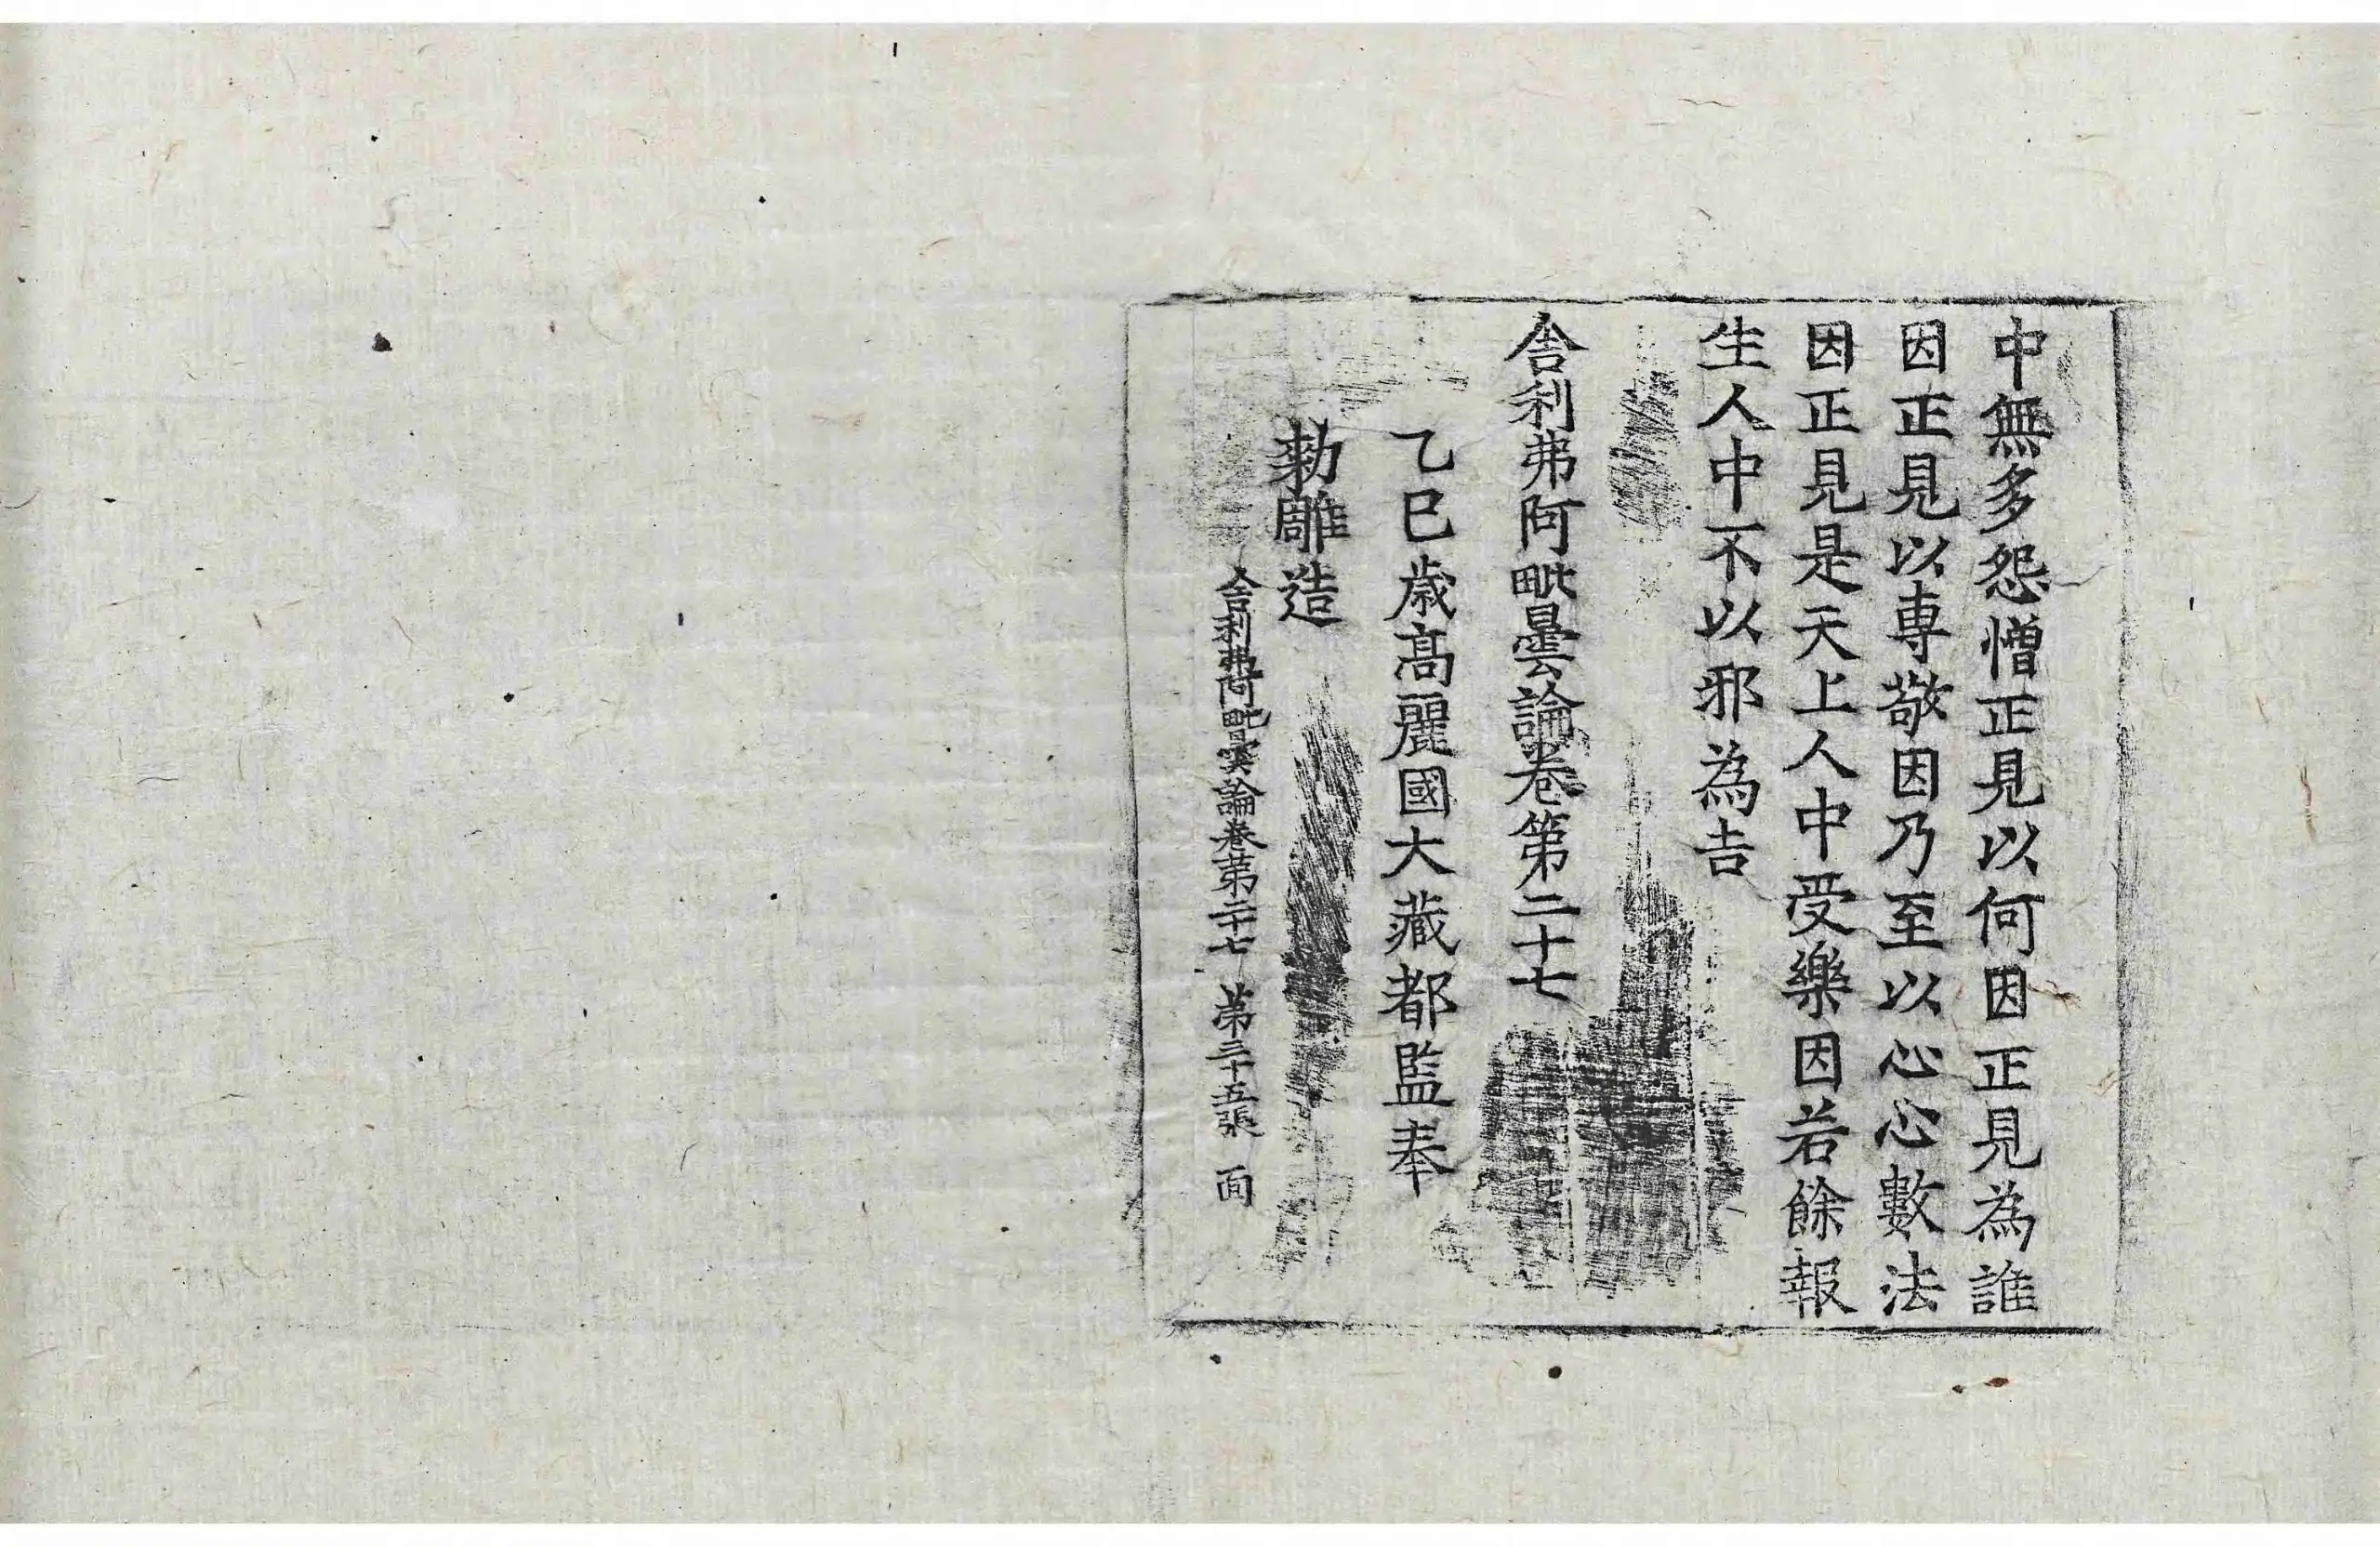 中無多怨憎正見以何因正見為誰
因正見以專敬因乃至以心心數法
因正見是天上人中受樂因若餘報
生人中不以邪為吉
舎利弗阿毗曇論卷第二十七
乙巳歳髙麗國大藏都監奉
勅雕造
舎利弗阿毗曇論卷苐二十七 苐三十五張 面